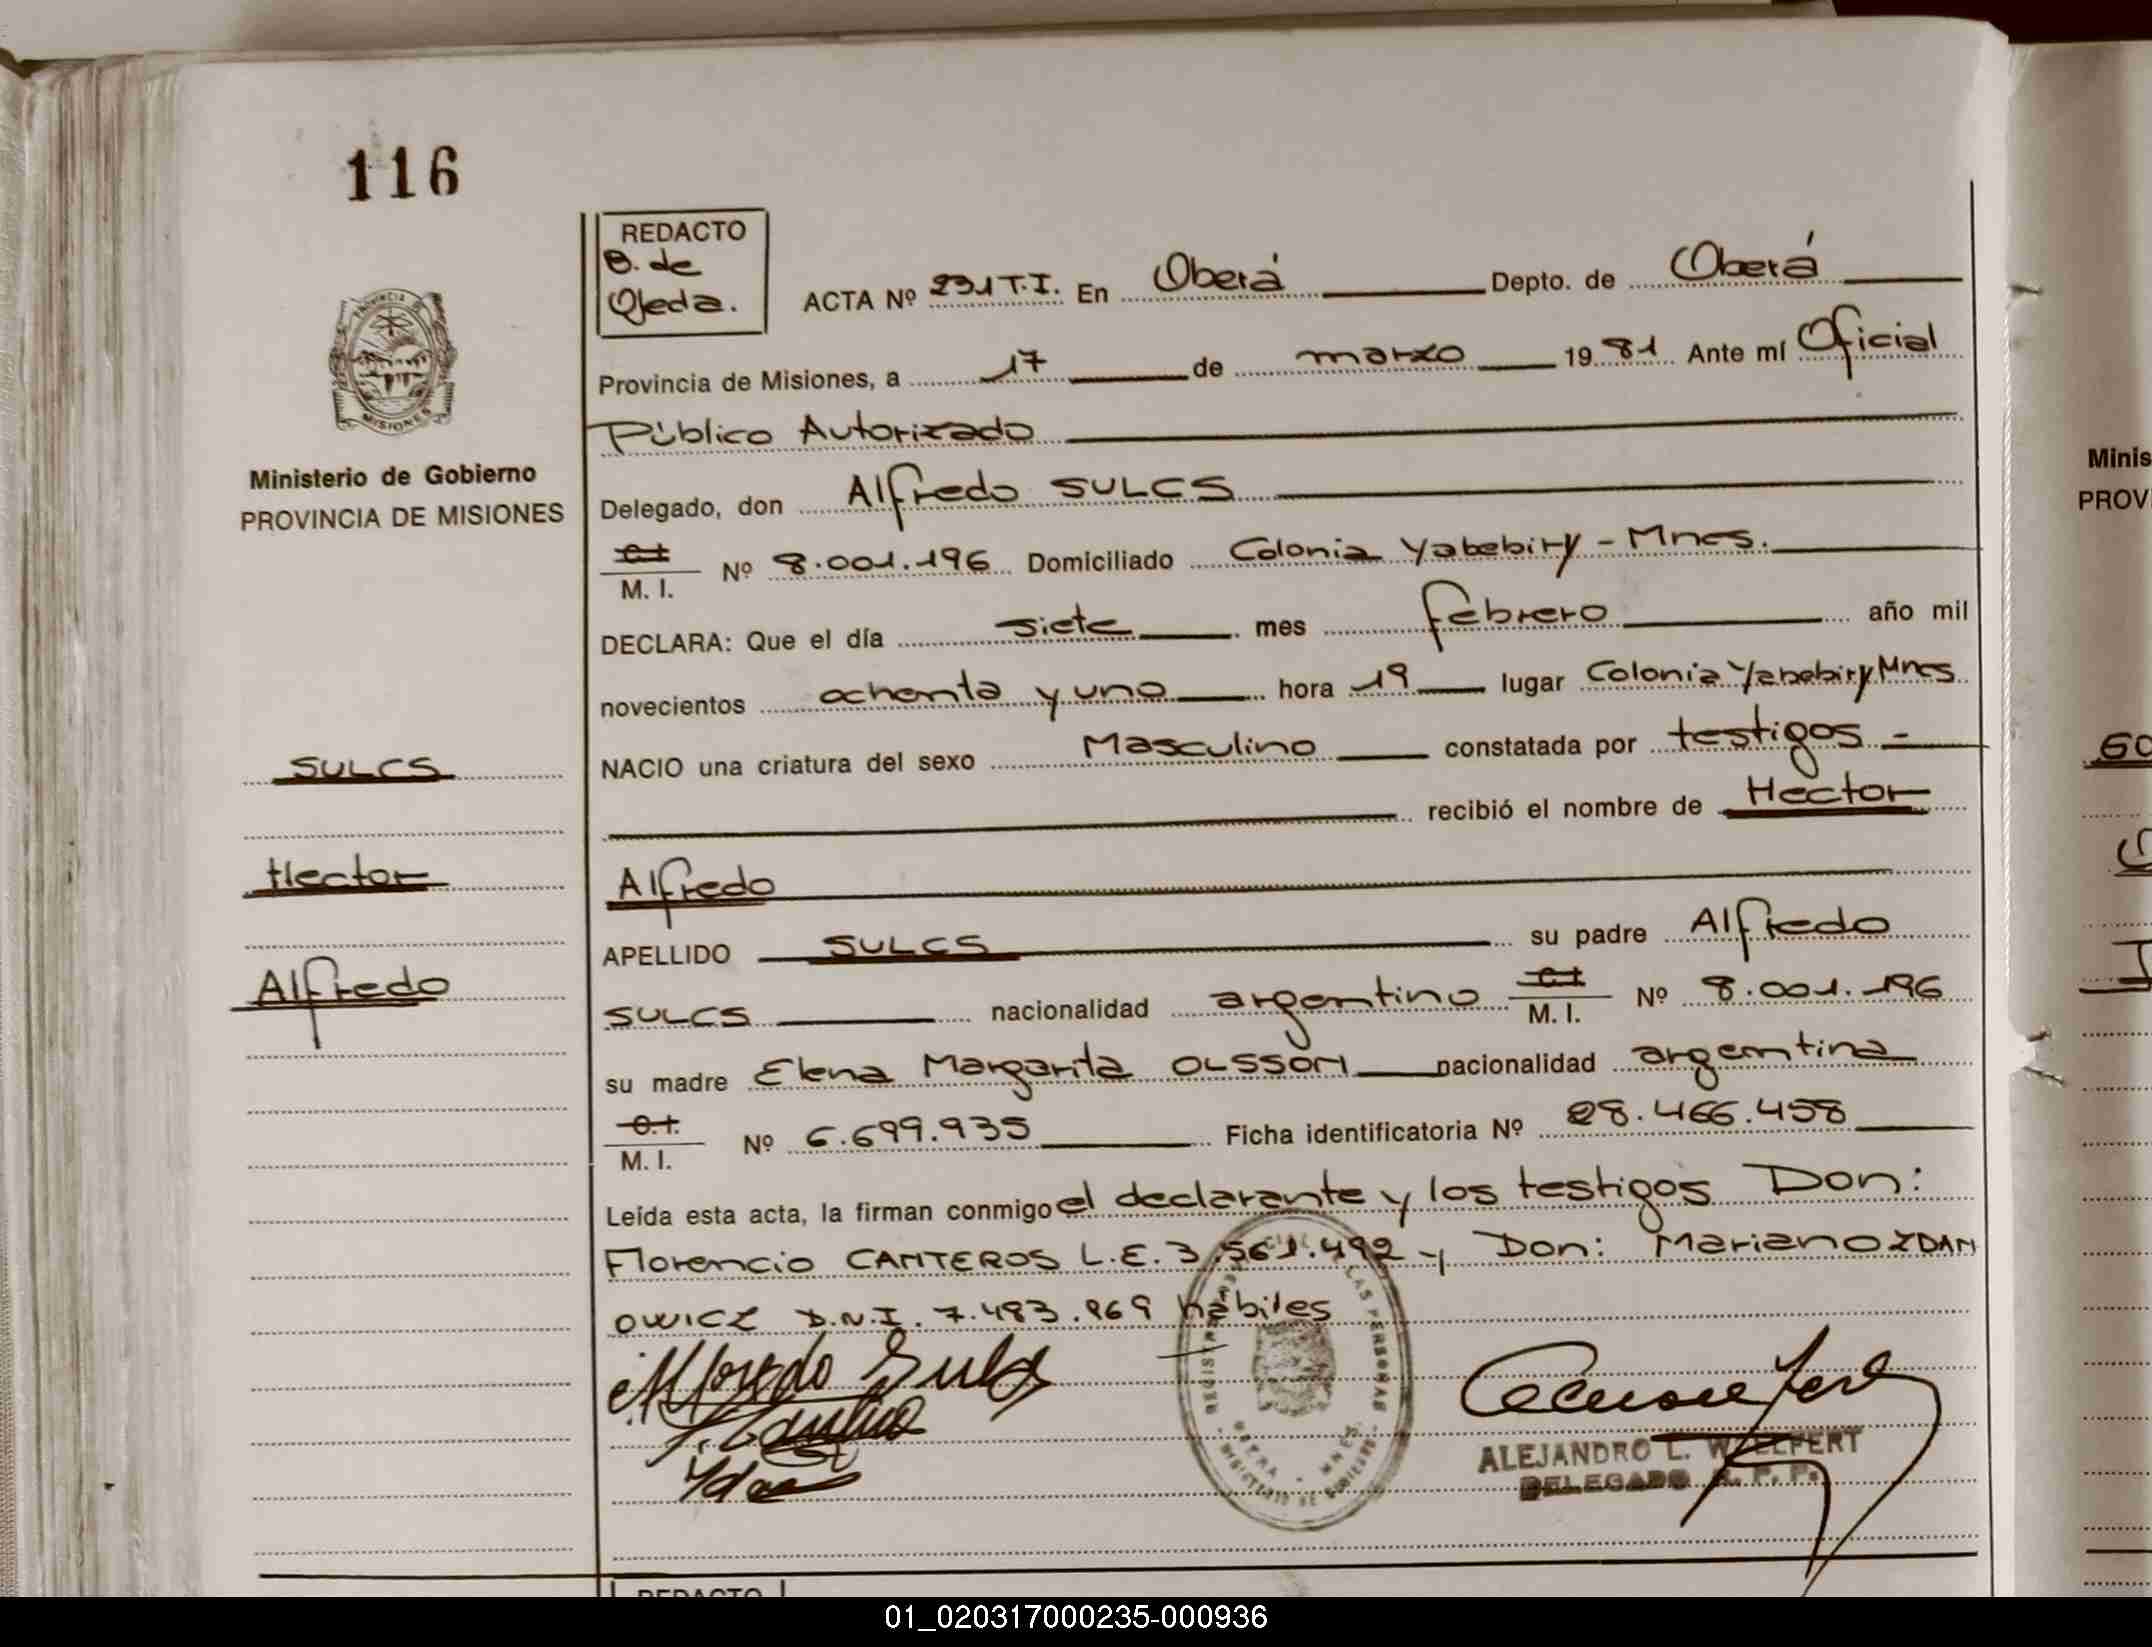 116
REDACTO
B. de
Ojeda.
ACTA Nº 231 T.I. En Oberá Depto. de Oberá
Provincia de Misiones, a 17 de marzo 19 81 Ante mí Oficial
Público Autorizado
Delegado, don Alfredo SULCS
PROVINCIA DE MISIONES
Ministerio de Gobierno
PROVINCIA DE MISIONES
M. I. Nº 8.001.196 Domiciliado Colonia Yabebiry - Mnes.
DECLARA: Que el día siete mes febrero año mil
novecientos ochenta y uno hora 19 lugar Colonia Yabebiry Mnes
SULCS
NACIO una criatura del sexo Masculino constatada por testigos -
recibió el nombre de Hector
Hector
Alfredo
APELLIDO SULCS su padre Alfredo
Alfredo
SULCS nacionalidad argentino M. I. Nº 8.001.196
su madre Elena Margarita OLSSON nacionalidad argentina
M. I. Nº 6.699.935 Ficha identificatoria Nº 28.466.458
Leída esta acta, la firman conmigo el declarante y los testigos Don:
Florencio CANTEROS L.E. 3.561.492 y Don: Mariano ZDAN
OWICZ D.N.I. 7.483.869 hábiles
Alfredo Sulcs
ALEJANDRO L. WELFERT
DELEGADO R. P. P.
REGISTRO CIVIL LAS PERSONAS
OBERA - MNES.
MINISTERIO DE GOBIERNO
Minis
PROV
GO
REDACTO
01_020317000235-000936